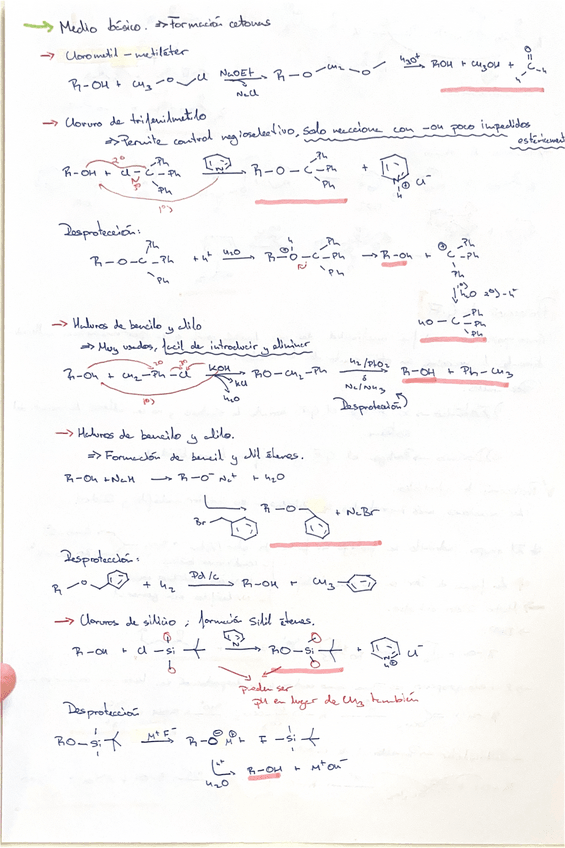 → Medio básico. ⇒ Formación cetonas
→ Clorometil-metiléter
R-OH + CH3-O Cl NaOEt NaCl R-O-CH2-O H3O+ ROH + CH3OH + O H H
→ Cloruro de trifenilmetilo
⇒ Permite control regioselectivo, solo reacciona con -OH poco impedidos
estéricamente
R-OH + Cl-C-Ph Ph Ph 2º) 3º) 1º) N R-O-C-Ph Ph Ph + N H ⊕ Cl-
Desprotección:
R-O-C-Ph Ph Ph + H+ H2O R-O-C-Ph H ⊕ Ph Ph → R-OH + ⊕ C-Ph Ph Ph
1º) H2O 2º) -H+
HO-C-Ph Ph Ph
→ Haluros de bencilo y alilo
⇒ Muy usados, facil de introducir y eliminar
R-OH + CH2-Ph-Cl 2º 3º 1º) KOH KCl H2O RO-CH2-Ph H2/PtO2 ó Na/NH3 R-OH + Ph-CH3
Desprotección
→ Haluros de bencilo y alilo.
⇒ Formación de bencil y alil éteres.
R-OH + NaH → R-O- Na+ + H2O
Br R-O + NaBr
Desprotección:
R O + H2 Pd/C R-OH + CH3
→ Cloruros de silicio; formación silil éteres.
R-OH + Cl-Si N RO-Si + N H ⊕ Cl-
pueden ser
pH en lugar de CH3 también
Desprotección
RO-Si M+F- R-O⊖ M⊕ + F-Si
H2O R-OH + M+OH-